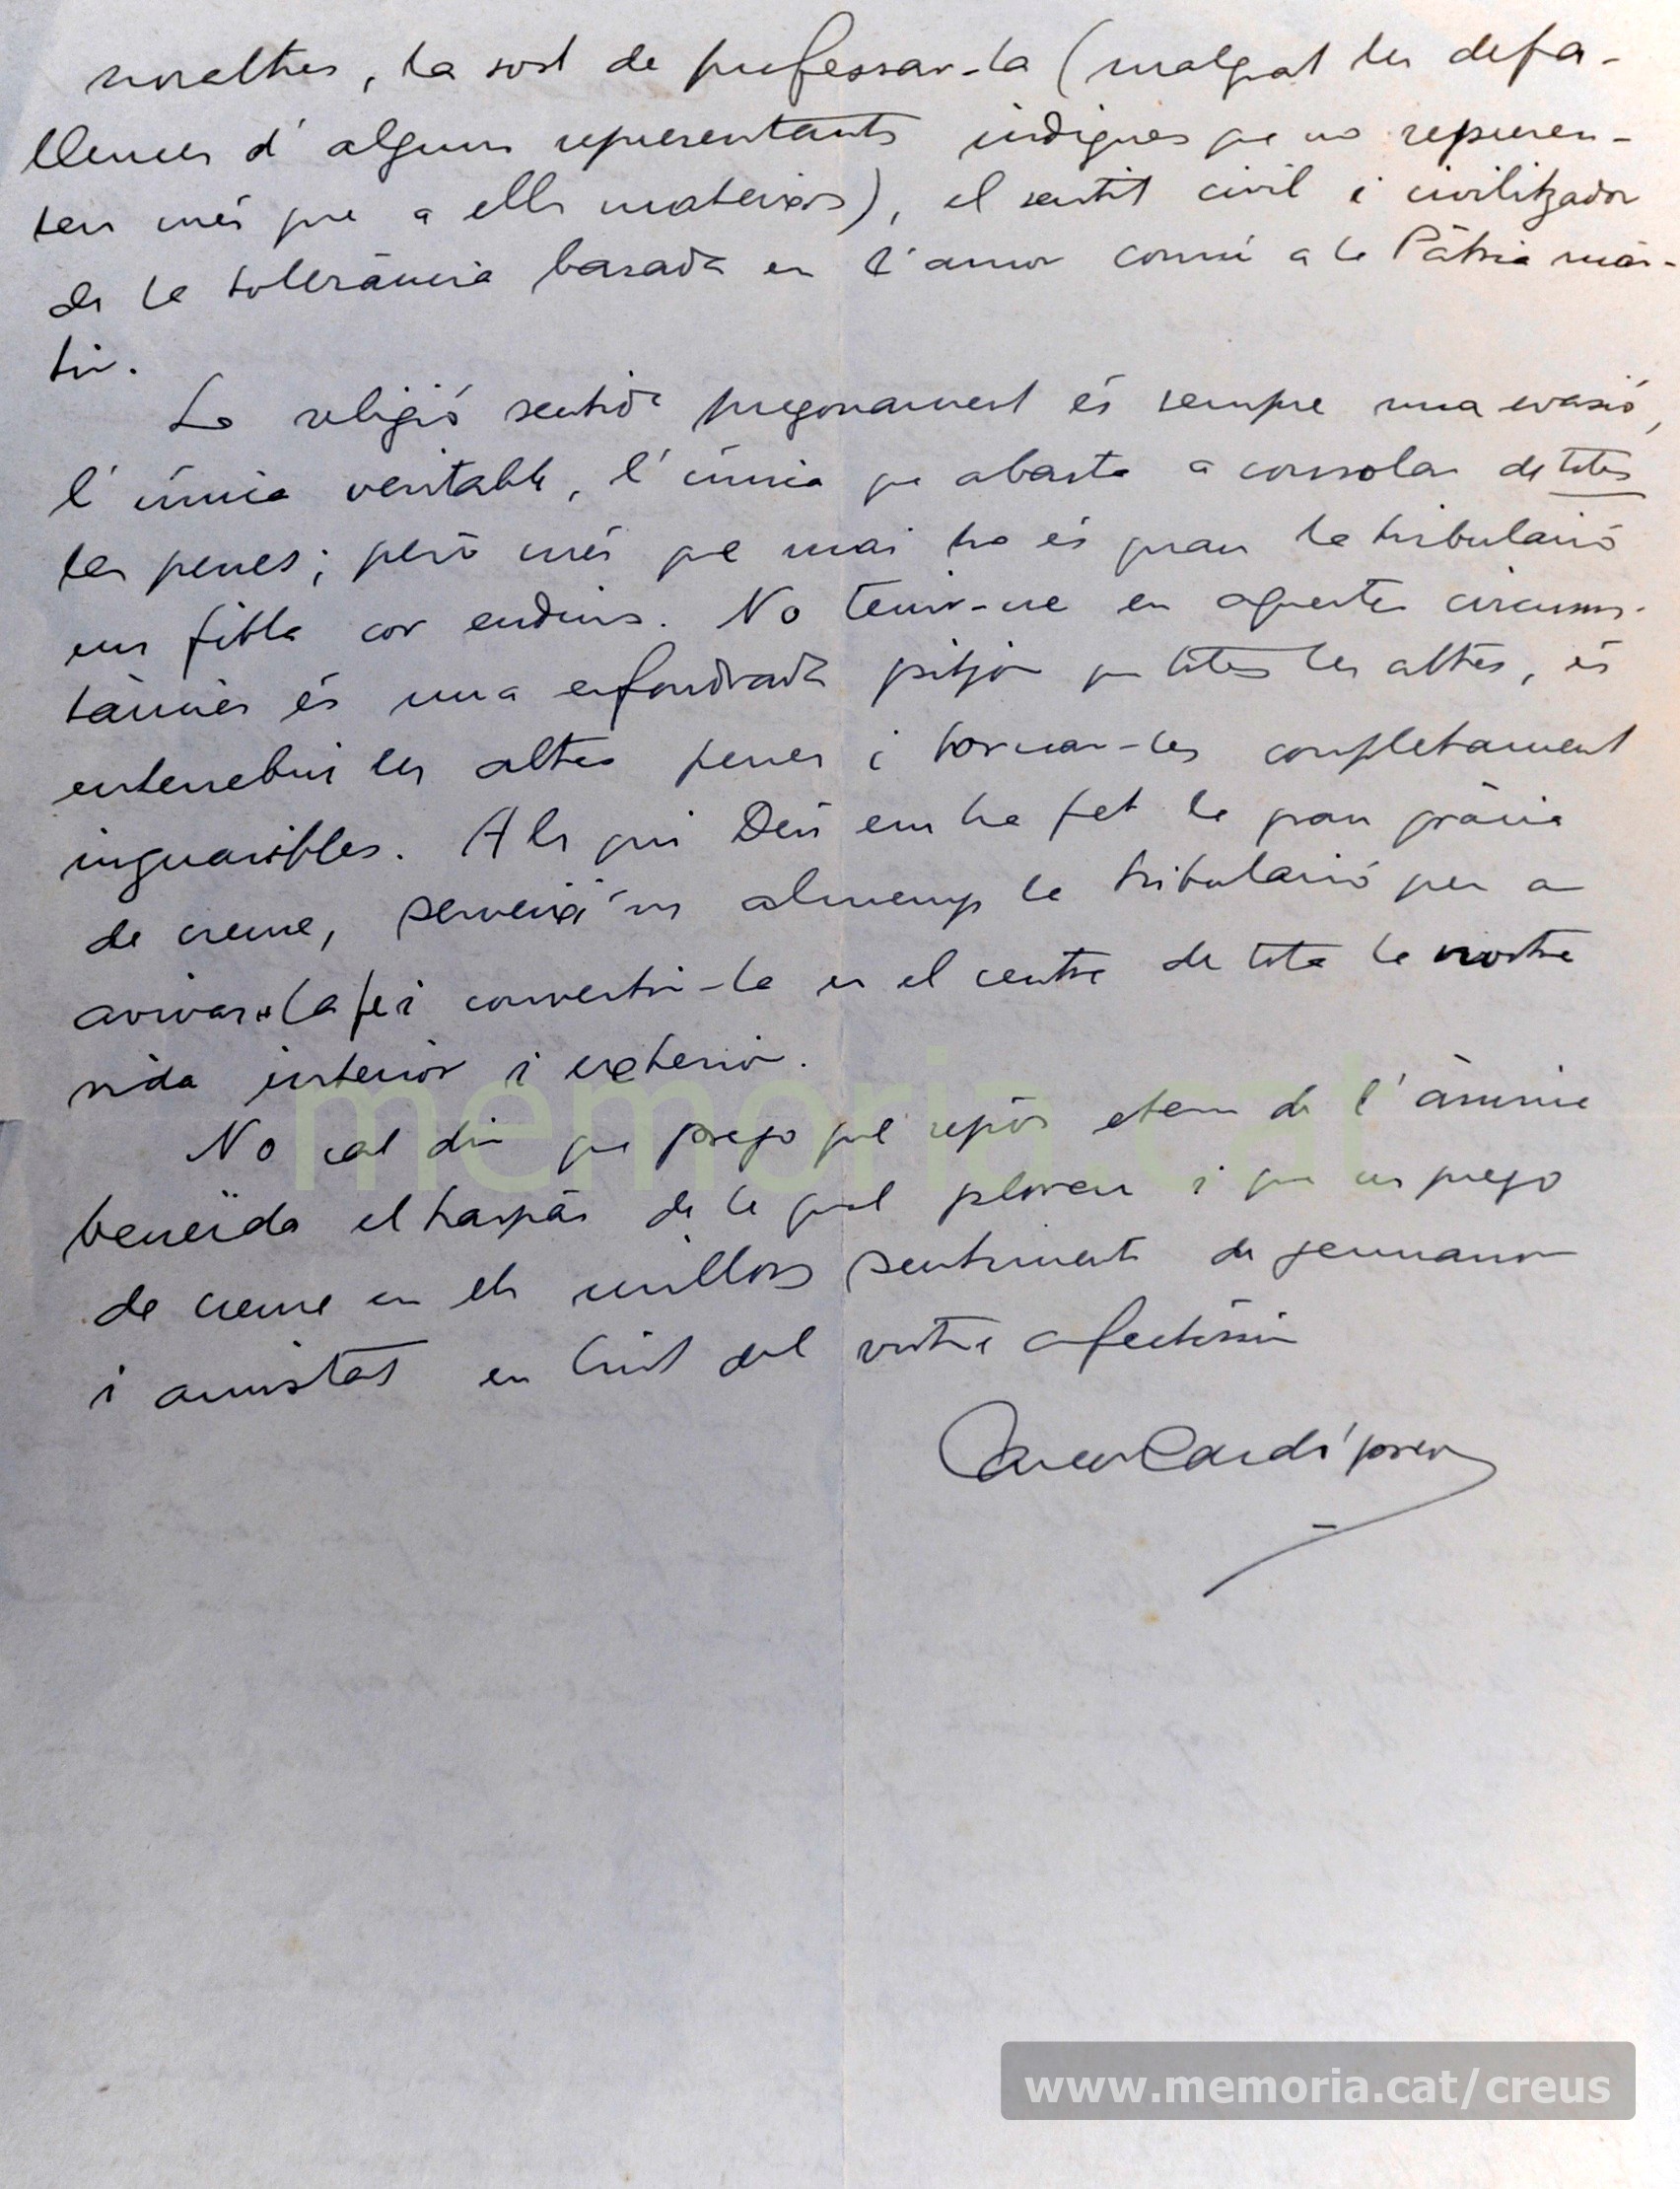 nosaltres, la sort de professar-la (malgrat les defa-
llences d'alguns representants indignes que no represen-
ten més que a ells mateixos), el sentit civil i civilitzador
de la tolerància basada en l'amor comú a la Pàtria màr-
tir.
La religió sentida pregonament és sempre una evasió,
l'única veritable, l'única que abasta a consolar de totes
les penes; però més que mai ho és quan la tribulació
ens fibla cor endins. No tenir-ne en aquestes circums-
tàncies és una enfondrada pitjor que totes les altres, és
entenebrir les altres penes i tornar-les completament
inguaribles. Als qui Déu em ha fet la gran gràcia
de creure, serveixi'ns almenys la tribulació per a
avivar la fe i convertir-la en el centre de tota la nostra
vida interior i exterior.
No cal dir que prego pel repòs etern de l'ànima
beneïda el traspàs de la qual ploreu i que us prego
de creure en els millors sentiments de germanor
i amistat en Crist del vostre afectíssim
Carles Cardó prev
memoria.cat
www.memoria.cat/creus